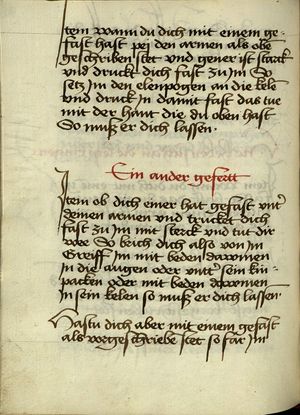 Item wann du dich mit einem ge
fast hast pei den armen als obē
geschriben stet und yener ist starck
und druckt dich fast zu im So
setz im den elenpogen an die kelē
und druck in damit fast das tue
mit der hant die du oben hast
So muß er dich lassen
Ein ander gefertt
Item ob dich einer hat gefast untʼ
deinen armen und trucket dich
fast zu im mit sterck und tut dir
wee So brich dich also von im
Greiff im mit beden dawmen
in die augen oder unttʼ sein kin
packen oder mit beden dawmen
in sein kelen so muß er dich lassen
Hastu dich aber mit einem gefast
als vorgeschribē stet so far im